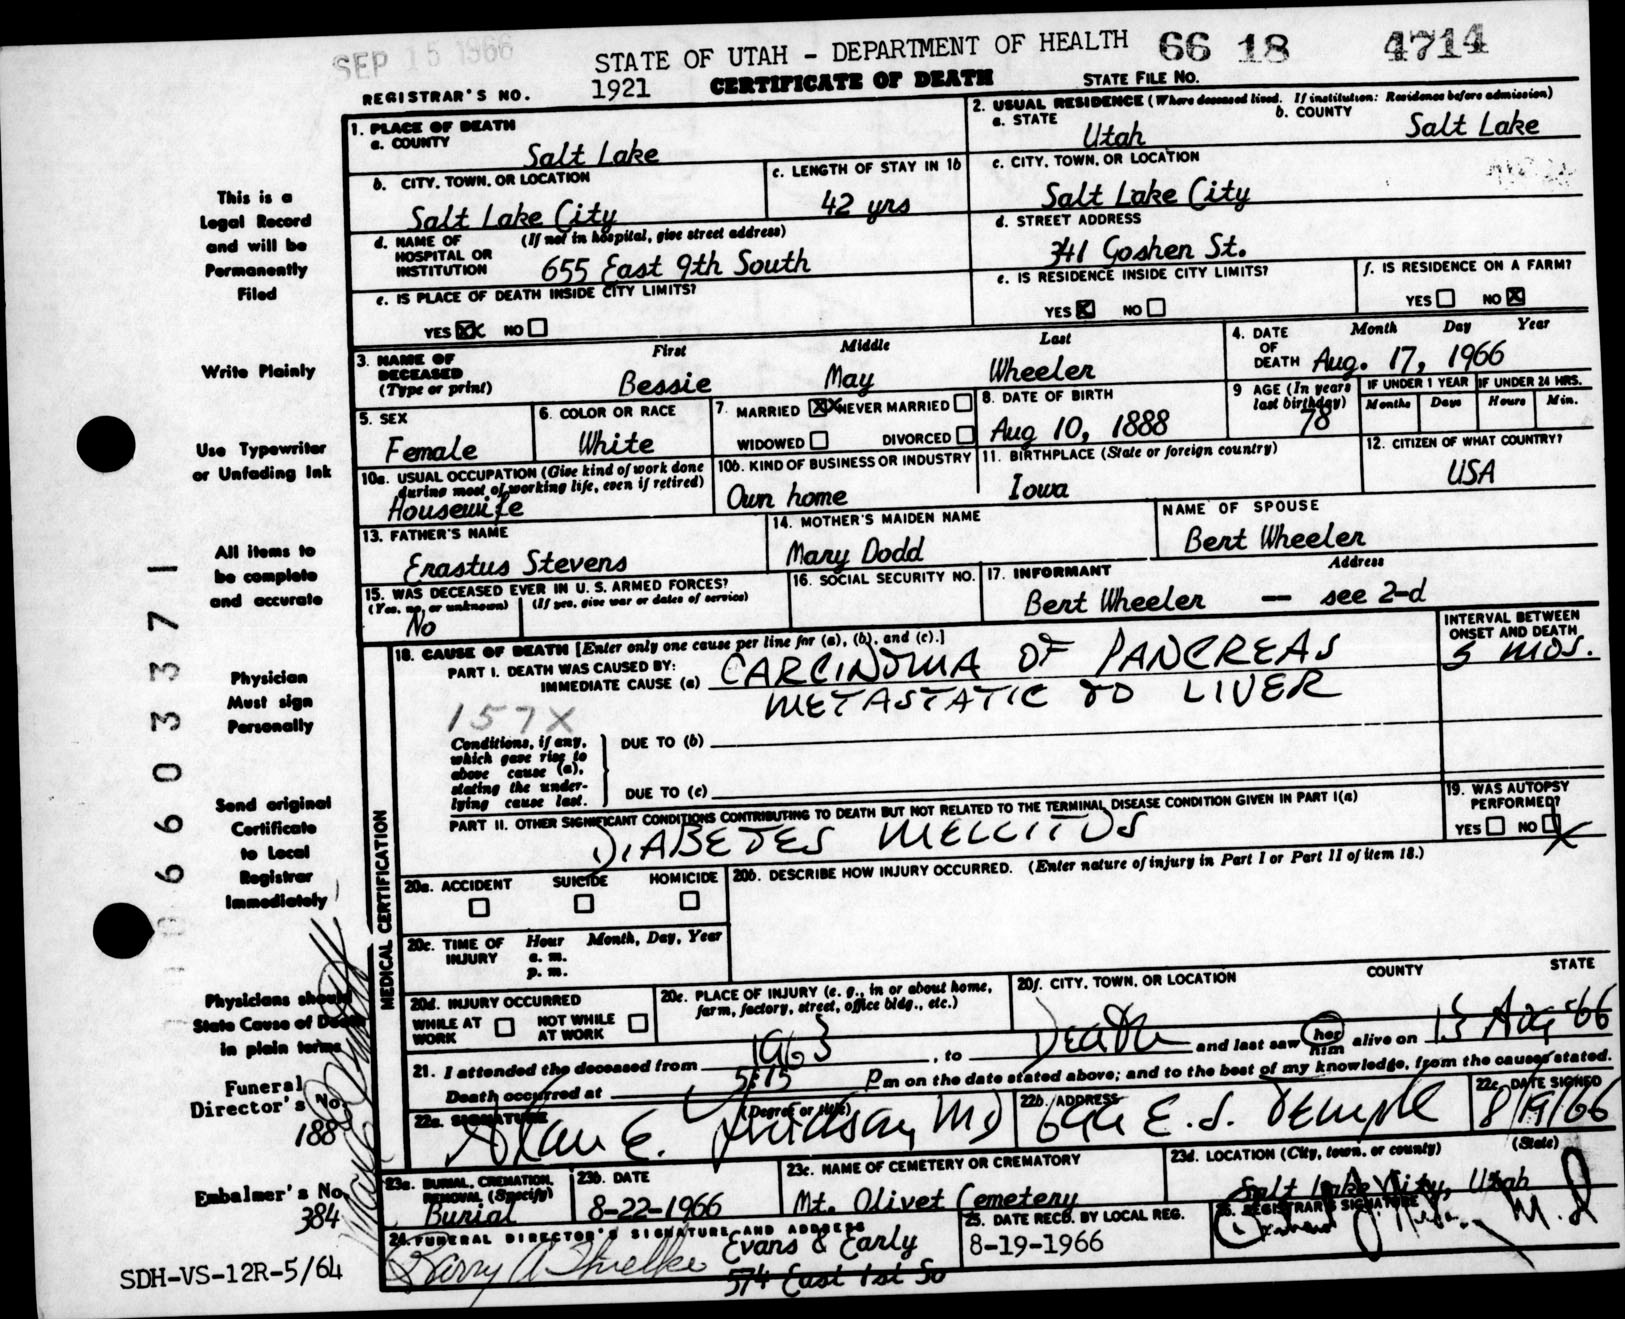 SEP 15 1966
STATE OF UTAH - DEPARTMENT OF HEALTH 66 18 4714
REGISTRAR'S NO. 1921 CERTIFICATE OF DEATH STATE FILE NO.
1. PLACE OF DEATH
a. COUNTY
Salt Lake
2. USUAL RESIDENCE (Where deceased lived. If institution: Residence before admission)
a. STATE Utah b. COUNTY Salt Lake
b. CITY, TOWN, OR LOCATION
Salt Lake City
c. LENGTH OF STAY IN 1b
42 yrs
c. CITY, TOWN, OR LOCATION
Salt Lake City
d. NAME OF HOSPITAL OR INSTITUTION (If not in hospital, give street address)
655 East 9th South
d. STREET ADDRESS
341 Goshen St.
e. IS PLACE OF DEATH INSIDE CITY LIMITS?
YES XX NO
e. IS RESIDENCE INSIDE CITY LIMITS?
YES X NO
f. IS RESIDENCE ON A FARM?
YES NO X
3. NAME OF DECEASED (Type or print)
First Middle Last
Bessie May Wheeler
4. DATE OF DEATH Month Day Year
Aug. 17, 1966
5. SEX
Female
6. COLOR OR RACE
White
7. MARRIED XX NEVER MARRIED
WIDOWED DIVORCED
8. DATE OF BIRTH
Aug 10, 1888
9 AGE (In years last birthday)
78
IF UNDER 1 YEAR IF UNDER 24 HRS.
Months Days Hours Min.
10a. USUAL OCCUPATION (Give kind of work done during most of working life, even if retired)
Housewife
10b. KIND OF BUSINESS OR INDUSTRY
Own home
11. BIRTHPLACE (State or foreign country)
Iowa
12. CITIZEN OF WHAT COUNTRY?
USA
13. FATHER'S NAME
Erastus Stevens
14. MOTHER'S MAIDEN NAME
Mary Dodd
NAME OF SPOUSE
Bert Wheeler
15. WAS DECEASED EVER IN U. S. ARMED FORCES?
(Yes, no, or unknown) (If yes, give war or dates of service)
No
16. SOCIAL SECURITY NO.
17. INFORMANT Address
Bert Wheeler — see 2-d
MEDICAL CERTIFICATION
18. CAUSE OF DEATH [Enter only one cause per line for (a), (b), and (c).]
PART I. DEATH WAS CAUSED BY:
IMMEDIATE CAUSE (a) CARCINOMA OF PANCREAS
METASTATIC TO LIVER
INTERVAL BETWEEN ONSET AND DEATH
5 MOS.
157X
Conditions, if any, which gave rise to above cause (a), stating the underlying cause last.
DUE TO (b)
DUE TO (c)
PART II. OTHER SIGNIFICANT CONDITIONS CONTRIBUTING TO DEATH BUT NOT RELATED TO THE TERMINAL DISEASE CONDITION GIVEN IN PART I(a)
DIABETES MELLITUS
19. WAS AUTOPSY PERFORMED?
YES NO X
20a. ACCIDENT SUICIDE HOMICIDE
20b. DESCRIBE HOW INJURY OCCURRED. (Enter nature of injury in Part I or Part II of item 18.)
20c. TIME OF INJURY Hour Month, Day, Year
a. m.
p. m.
20d. INJURY OCCURRED
WHILE AT WORK NOT WHILE AT WORK
20e. PLACE OF INJURY (e. g., in or about home, farm, factory, street, office bldg., etc.)
20f. CITY, TOWN, OR LOCATION COUNTY STATE
21. I attended the deceased from 1963, to Death and last saw her him alive on 15 Aug '66
Death occurred at 5:15 P m on the date stated above; and to the best of my knowledge, from the causes stated.
22a. SIGNATURE (Degree or title)
Alan E. Lindsay, MD
22b. ADDRESS
E. S. Temple
22c. DATE SIGNED
8/19/66
23a. BURIAL, CREMATION, REMOVAL (Specify)
Burial
23b. DATE
8-22-1966
23c. NAME OF CEMETERY OR CREMATORY
Mt. Olivet Cemetery
23d. LOCATION (City, town, or county) (State)
Salt Lake City, Utah
24. FUNERAL DIRECTOR'S SIGNATURE AND ADDRESS
Harry A Evans & Early
574 East 1st So
25. DATE RECD. BY LOCAL REG.
8-19-1966
26. REGISTRAR'S SIGNATURE
M.D
This is a
Legal Record
and will be
Permanently
Filed
Write Plainly
Use Typewriter
or Unfading Ink
All items to
be complete
and accurate
Physician
Must sign
Personally
Send original
Certificate
to Local
Registrar
Immediately
Physicians should
State Cause of Death
in plain terms
Funeral
Director's No.
188
Embalmer's No.
384
SDH-VS-12R-5/64
6603371